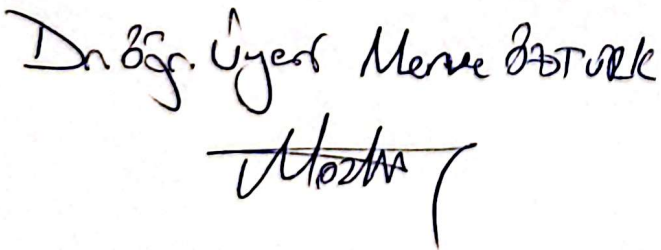 Dr. Öğr. Üyesi Merve ÖZTÜRK